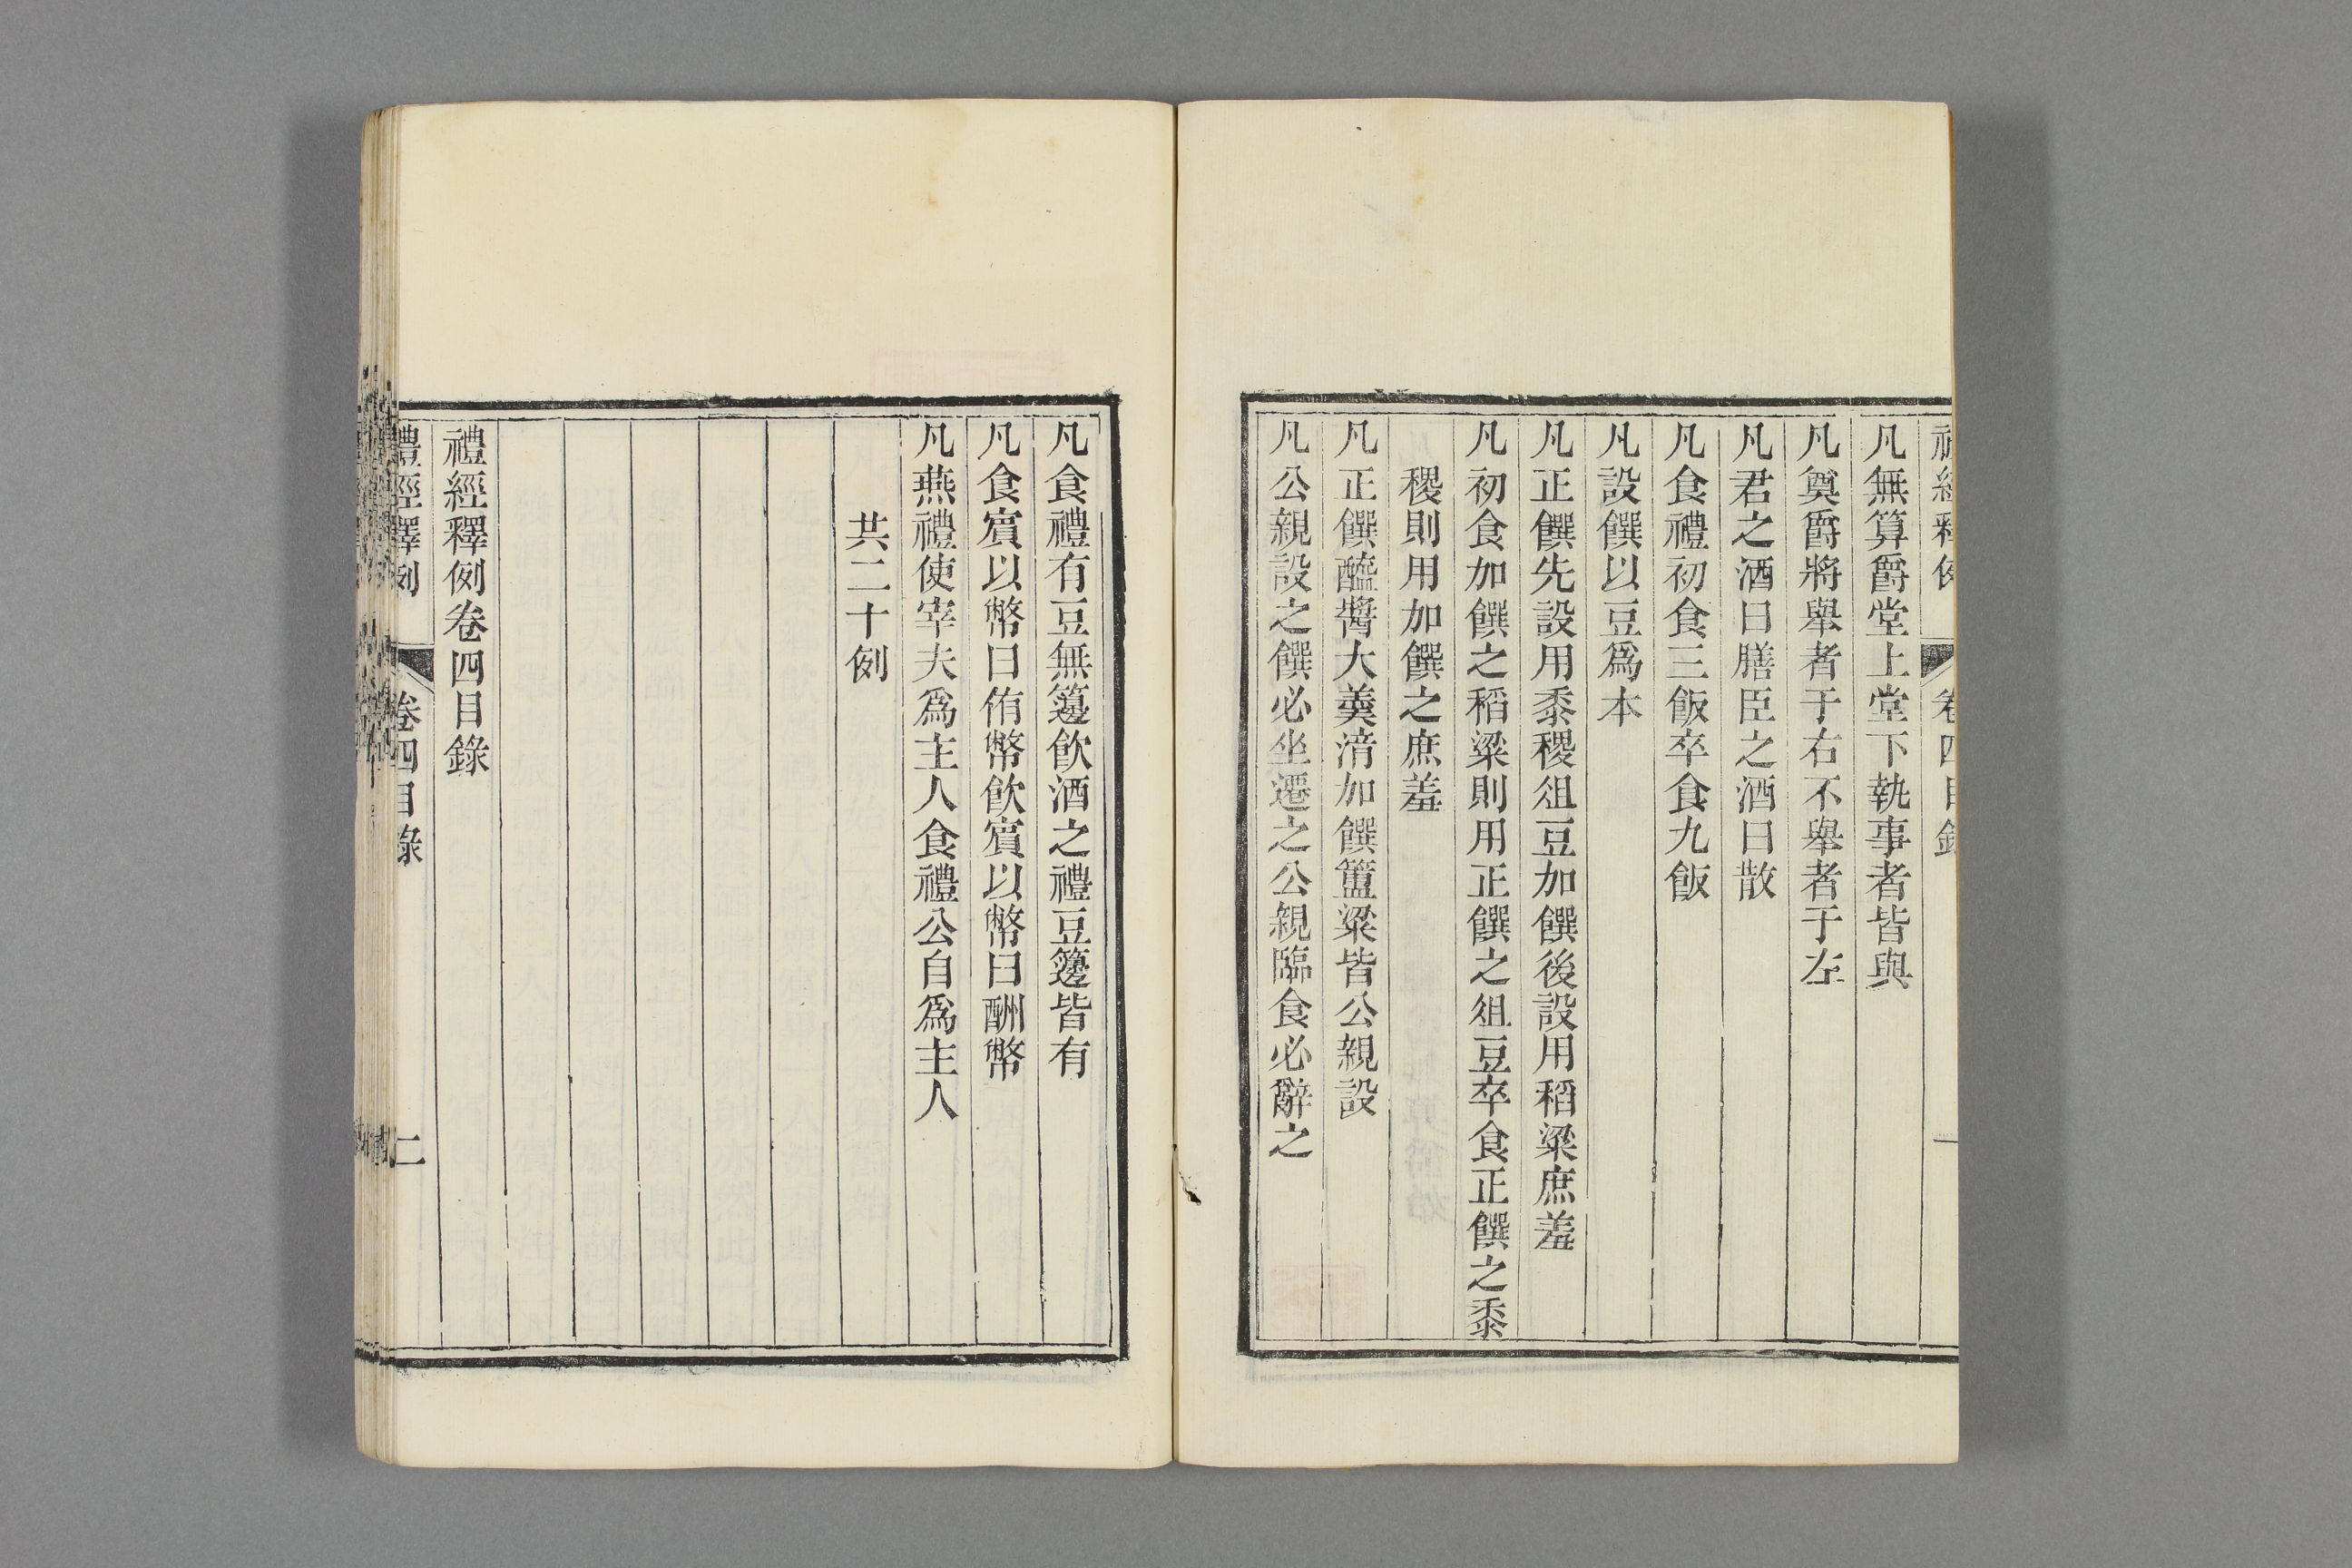 禮經釋例 卷四目錄 一
凡無算爵堂上堂下執事者皆與
凡奠爵將舉者于右不舉者于左
凡君之酒曰膳臣之酒曰散
凡食禮初食三飯卒食九飯
凡設饌以豆爲本
凡正饌先設用黍稷俎豆加饌後設用稻粱庶羞
凡初食加饌之稻粱則用正饌之俎豆卒食正饌之黍
稷則用加饌之庶羞
凡正饌醯醬大羹湆加饌簠粱皆公親設
凡公親設之饌必坐遷之公親臨食必辭之
凡食禮有豆無籩飲酒之禮豆籩皆有
凡食賓以幣曰侑幣飲賓以幣曰酬幣
凡燕禮使宰夫爲主人食禮公自爲主人
共二十例
禮經釋例卷四目錄
禮經釋例 卷四目錄 二